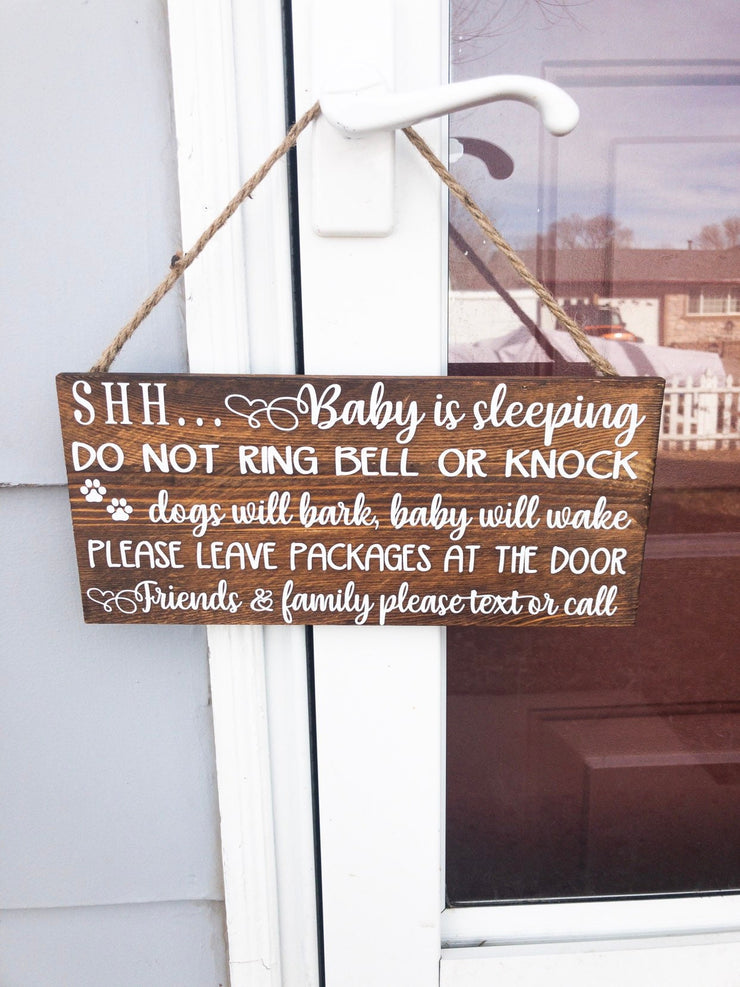 SHH... Baby is sleeping
DO NOT RING BELL OR KNOCK
dogs will bark, baby will wake
PLEASE LEAVE PACKAGES AT THE DOOR
Friends & family please text or call